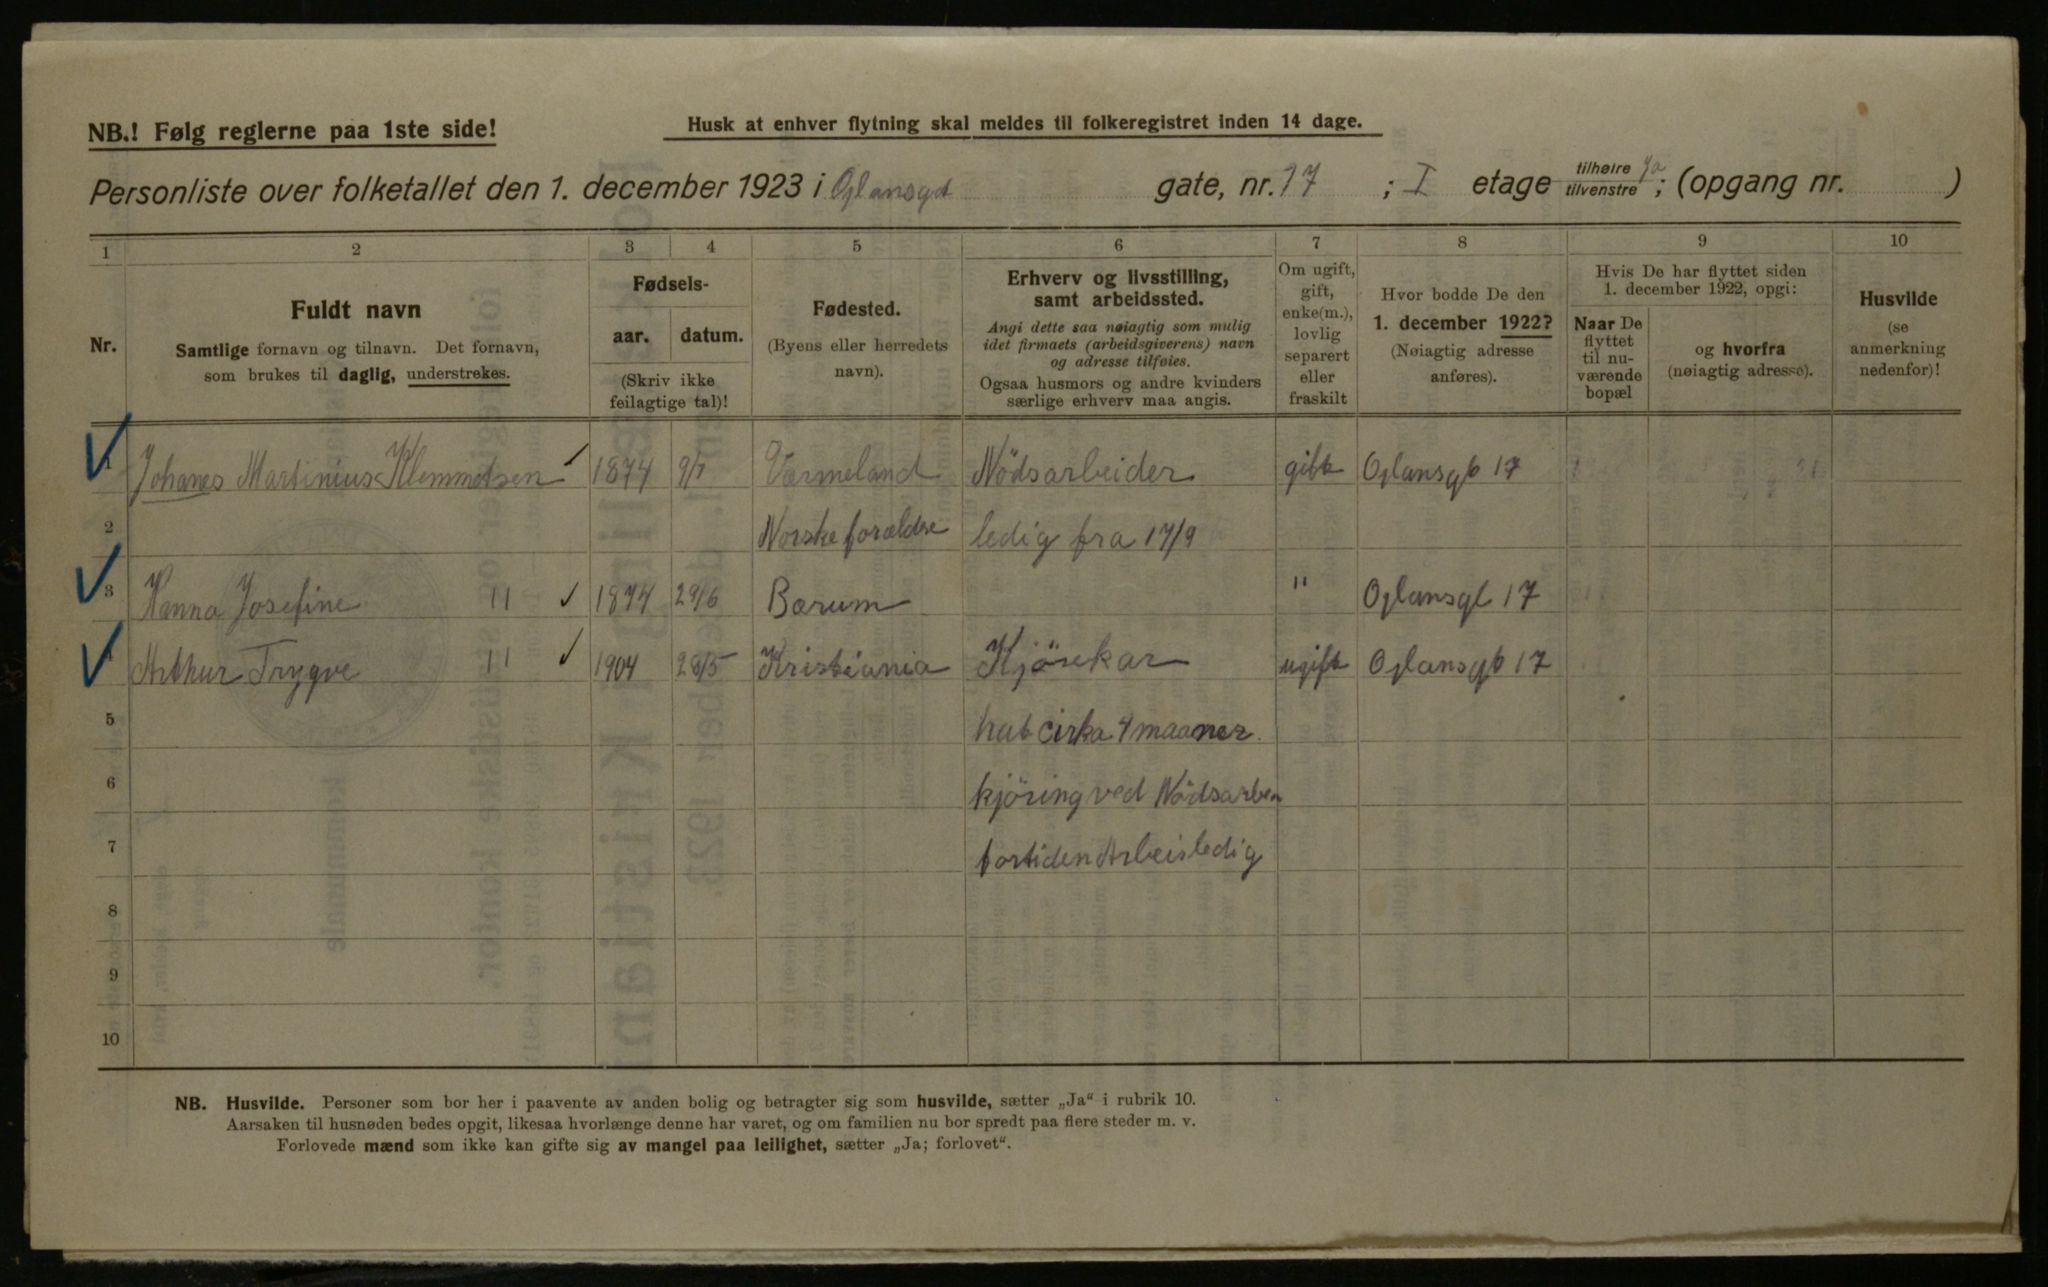 NB.! Følg reglerne paa 1ste side!
Husk at enhver flytning skal meldes til folkeregistret inden 14 dage.
Personliste over folketallet den 1. december 1923 i Oplansgt gate, nr. 17 ; I etage tilhøire tilvenstre Ja ; (opgang nr. )
1 2 3 4 5 6 7 8 9 10
Nr.
Fuldt navn
Samtlige fornavn og tilnavn. Det fornavn,
som brukes til daglig, understrekes.
Fødsels-
aar. datum.
(Skriv ikke
feilagtige tal)!
Fødested.
(Byens eller herredets
navn).
Erhverv og livsstilling,
samt arbeidssted.
Angi dette saa nøiagtig som mulig
idet firmaets (arbeidsgiverens) navn
og adresse tilføies.
Ogsaa husmors og andre kvinders
særlige erhverv maa angis.
Om ugift,
gift,
enke(m.),
lovlig
separert
eller
fraskilt
Hvor bodde De den
1. december 1922?
(Nøiagtig adresse
anføres).
Hvis De har flyttet siden
1. december 1922, opgi:
Naar De
flyttet
til nu-
værende
bopæl
og hvorfra
(nøiagtig adresse).
Husvilde
(se
anmerkning
nedenfor)!
1 Johanes Martinius Klemmetsen 1874 9/7 Værmeland Nödsarbeider gift Oplansgt 17
2 Norske forældre ledig fra 17/9
3 Hanna Josefine 11 1874 29/6 Bærum " Oplansgt 17
4 Arthur Trygve 11 1904 28/5 Kristiania Kjörekar ugift Oplansgt 17
5 hat cirka 4 maaner
6 kjöring ved Nödsarbei
7 fortiden Arbeisledig
8
9
10
NB. Husvilde. Personer som bor her i paavente av anden bolig og betragter sig som husvilde, sætter „Ja“ i rubrik 10.
Aarsaken til husnøden bedes opgit, likesaa hvorlænge denne har varet, og om familien nu bor spredt paa flere steder m. v.
Forlovede mænd som ikke kan gifte sig av mangel paa leilighet, sætter „Ja; forlovet“.